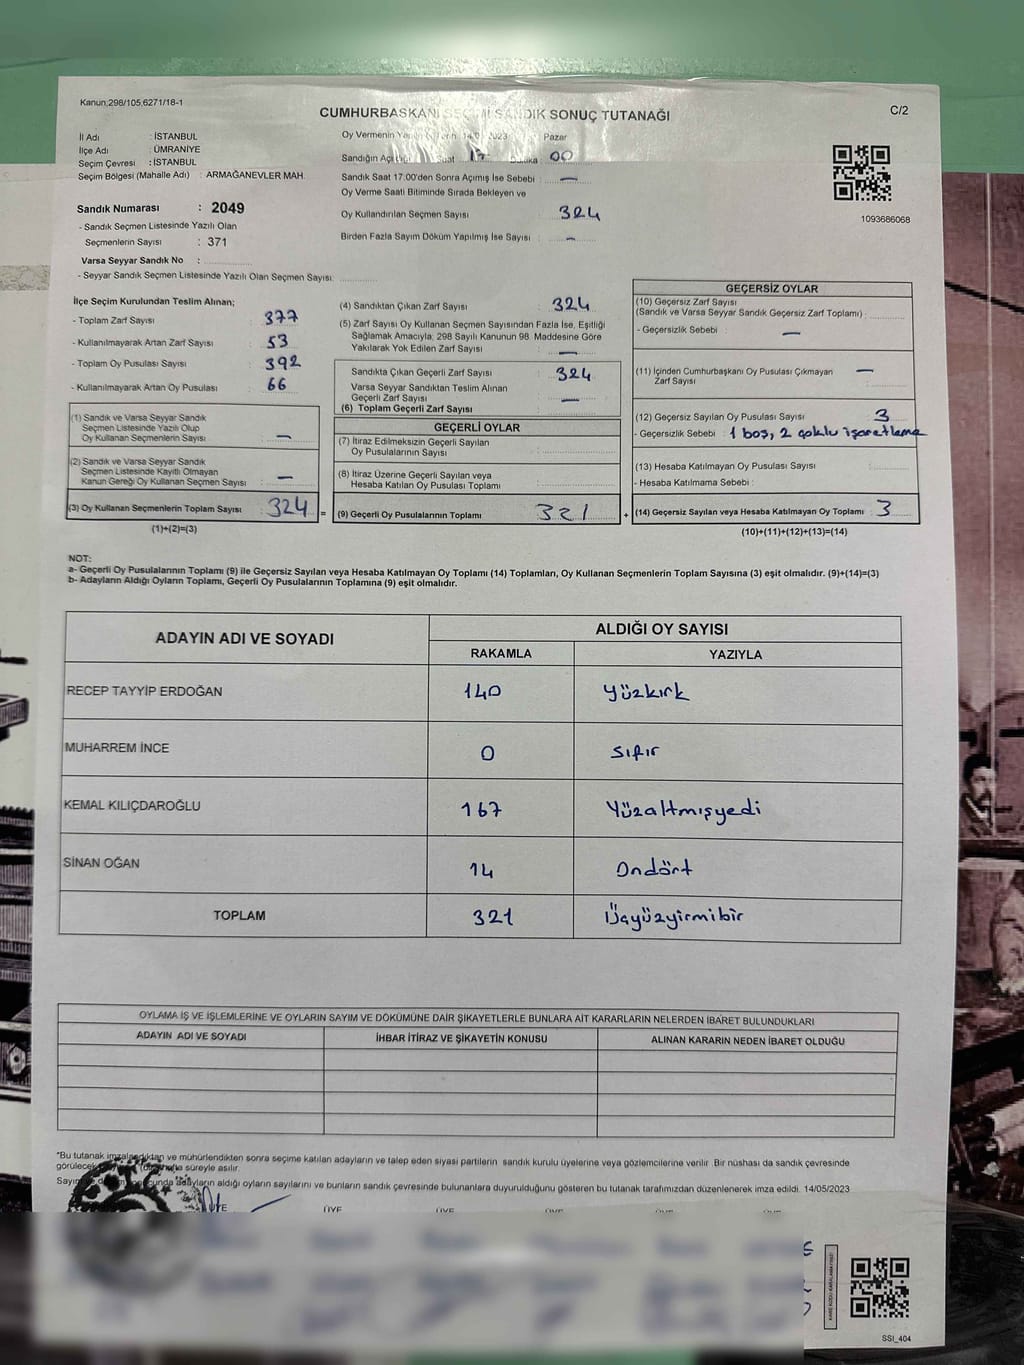 Kanun,298/105,6271/18-1
CUMHURBAŞKANI SEÇİMİ SANDIK SONUÇ TUTANAĞI
C/2
İl Adı : İSTANBUL
İlçe Adı : ÜMRANİYE
Seçim Çevresi : İSTANBUL
Seçim Bölgesi (Mahalle Adı) : ARMAĞANEVLER MAH.
Sandık Numarası : 2049
- Sandık Seçmen Listesinde Yazılı Olan
Seçmenlerin Sayısı : 371
Varsa Seyyar Sandık No :
- Seyyar Sandık Seçmen Listesinde Yazılı Olan Seçmen Sayısı:
Oy Vermenin 2023 Pazar
Sandığın 17 00
Sandık Saat 17:00'den Sonra Açımış İse Sebebi : —
Oy Verme Saati Bitiminde Sırada Bekleyen ve
Oy Kullandırılan Seçmen Sayısı 324
Birden Fazla Sayım Döküm Yapılmış İse Sayısı : —
1093686068
İlçe Seçim Kurulundan Teslim Alınan;
- Toplam Zarf Sayısı : 377
- Kullanılmayarak Artan Zarf Sayısı : 53
- Toplam Oy Pusulası Sayısı : 392
- Kullanılmayarak Artan Oy Pusulası : 66
(1) Sandık ve Varsa Seyyar Sandık
Seçmen Listesinde Yazılı Olup
Oy Kullanan Seçmenlerin Sayısı : —
(2) Sandık ve Varsa Seyyar Sandık
Seçmen Listesinde Kayıtlı Olmayan
Kanun Gereği Oy Kullanan Seçmen Sayısı : —
(3) Oy Kullanan Seçmenlerin Toplam Sayısı 324 =
(1)+(2)=(3)
(4) Sandıktan Çıkan Zarf Sayısı : 324
(5) Zarf Sayısı Oy Kullanan Seçmen Sayısından Fazla İse, Eşitliği
Sağlamak Amacıyla; 298 Sayılı Kanunun 98. Maddesine Göre
Yakılarak Yok Edilen Zarf Sayısı : —
Sandıkta Çıkan Geçerli Zarf Sayısı : 324
Varsa Seyyar Sandıktan Teslim Alınan
Geçerli Zarf Sayısı : —
(6) Toplam Geçerli Zarf Sayısı
GEÇERLİ OYLAR
(7) İtiraz Edilmeksizin Geçerli Sayılan
Oy Pusulalarının Sayısı :
(8) İtiraz Üzerine Geçerli Sayılan veya
Hesaba Katılan Oy Pusulası Toplamı :
(9) Geçerli Oy Pusulalarının Toplamı 321 +
GEÇERSİZ OYLAR
(10) Geçersiz Zarf Sayısı
(Sandık ve Varsa Seyyar Sandık Geçersiz Zarf Toplamı) :
- Geçersizlik Sebebi : —
(11) İçinden Cumhurbaşkanı Oy Pusulası Çıkmayan —
Zarf Sayısı :
(12) Geçersiz Sayılan Oy Pusulası Sayısı : 3
- Geçersizlik Sebebi : 1 boş, 2 çoklu işaretleme
(13) Hesaba Katılmayan Oy Pusulası Sayısı :
- Hesaba Katılmama Sebebi :
(14) Geçersiz Sayılan veya Hesaba Katılmayan Oy Toplamı : 3
(10)+(11)+(12)+(13)=(14)
NOT:
a- Geçerli Oy Pusulalarının Toplamı (9) ile Geçersiz Sayılan veya Hesaba Katılmayan Oy Toplamı (14) Toplamları, Oy Kullanan Seçmenlerin Toplam Sayısına (3) eşit olmalıdır. (9)+(14)=(3)
b- Adayların Aldığı Oyların Toplamı, Geçerli Oy Pusulalarının Toplamına (9) eşit olmalıdır.
ADAYIN ADI VE SOYADI
ALDIĞI OY SAYISI
RAKAMLA YAZIYLA
RECEP TAYYİP ERDOĞAN 140 Yüzkırk
MUHARREM İNCE 0 Sıfır
KEMAL KILIÇDAROĞLU 167 Yüzaltmışyedi
SİNAN OĞAN 14 Ondört
TOPLAM 321 Üçyüzyirmibir
OYLAMA İŞ VE İŞLEMLERİNE VE OYLARIN SAYIM VE DÖKÜMÜNE DAİR ŞİKAYETLERLE BUNLARA AİT KARARLARIN NELERDEN İBARET BULUNDUKLARI
ADAYIN ADI VE SOYADI İHBAR İTİRAZ VE ŞİKAYETİN KONUSU ALINAN KARARIN NEDEN İBARET OLDUĞU
*Bu tutanak imzalandıktan ve mühürlendikten sonra seçime katılan adayların ve talep eden siyasi partilerin sandık kurulu üyelerine veya gözlemcilerine verilir. Bir nüshası da sandık çevresinde
görülecek süreyle asılır.
Sayım adayların aldığı oyların sayılarını ve bunların sandık çevresinde bulunanlara duyurulduğunu gösteren bu tutanak tarafımızdan düzenlenerek imza edildi. 14/05/2023
ÜYE ÜYE ÜYE
SSI_404